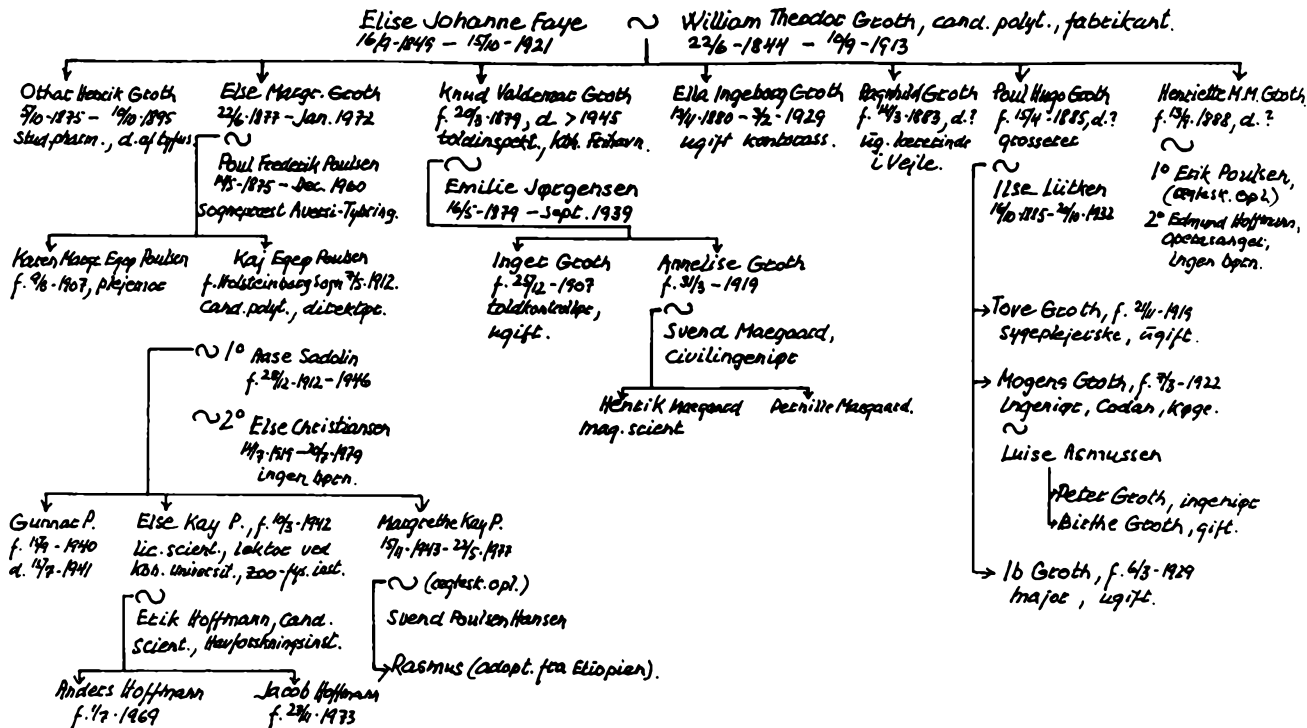 Elise Johanne Faye ~ William Theodor Groth, cand. polyt., fabrikant.
16/9-1849 – 15/10-1921
22/6-1844 – 10/9-1913
Othar Henrik Groth
5/10-1875 – 19/10-1895
Stud. pharm., d. af tyfus
Else Margr. Groth
22/6-1877 – Jan. 1972
~
Poul Frederik Poulsen
14/5-1875 – Dec. 1960
Sognepræst Aversi-Tybring.
Knud Valdemar Groth
f. 20/3-1879, d. > 1945
toldinspekt., Kbh. Frihavn.
~
Emilie Jørgensen
16/5-1879 – Sept. 1939
Ella Ingeborg Groth
ugift kontorass.
Ragnhild Groth
f. 14/3-1883, d. ?
ug. lærerinde
i Vejle.
Poul Hugo Groth
f. 15/4-1885, d. ?
grosserer
~
Ilse Lütken
Henriette M.M. Groth.
1888, d. ?
~
1º Erik Poulsen,
(ægtesk. opl.)
2º Edmund Hoffmann,
Operasanger,
ingen børn.
Karen Margr. Egep Poulsen
1907, plejemor
Kaj Egep Poulsen
f. Holsteinborg Sogn 7/5-1912.
Cand. polyt., direktør.
Inger Groth
f. 25/12-1907
toldkontrollør,
ugift.
Annelise Groth
f. 31/3-1919
~
Svend Maegaard,
Civilingeniør
~ 1º Aase Sadolin
f. 28/12-1912 – 1946
~ 2º Else Christiansen
14/7-1919 – 20/7-1979
ingen børn.
Henrik Maegaard
mag. scient
Pernille Maegaard.
Tove Groth, f. 21/11-1919
Sygeplejerske, ugift.
Mogens Groth, f. 7/3-1922
Ingeniør, Codan, Køge.
~
Luise Asmussen
Peter Groth, ingeniør
Birthe Groth, gift.
Ib Groth, f. 6/3-1929
major, ugift.
Gunnar P.
f. 15/9-1940
d. 12/7-1941
Else Kay P., f. 10/3-1942
Lic. scient., lektor ved
Kbh. universit., zoo-fys. inst.
~
Erik Hoffmann, Cand.
Scient., Havforskningsinst.
Margrethe Kay P.
15/11-1943 – 22/5-1977
~ (ægtesk. opl.)
Svend Poulsen Hansen
Rasmus (adopt. fra Etiopien).
Anders Hoffmann
f. 1/7-1969
Jacob Hoffmann
f. 23/11-1973